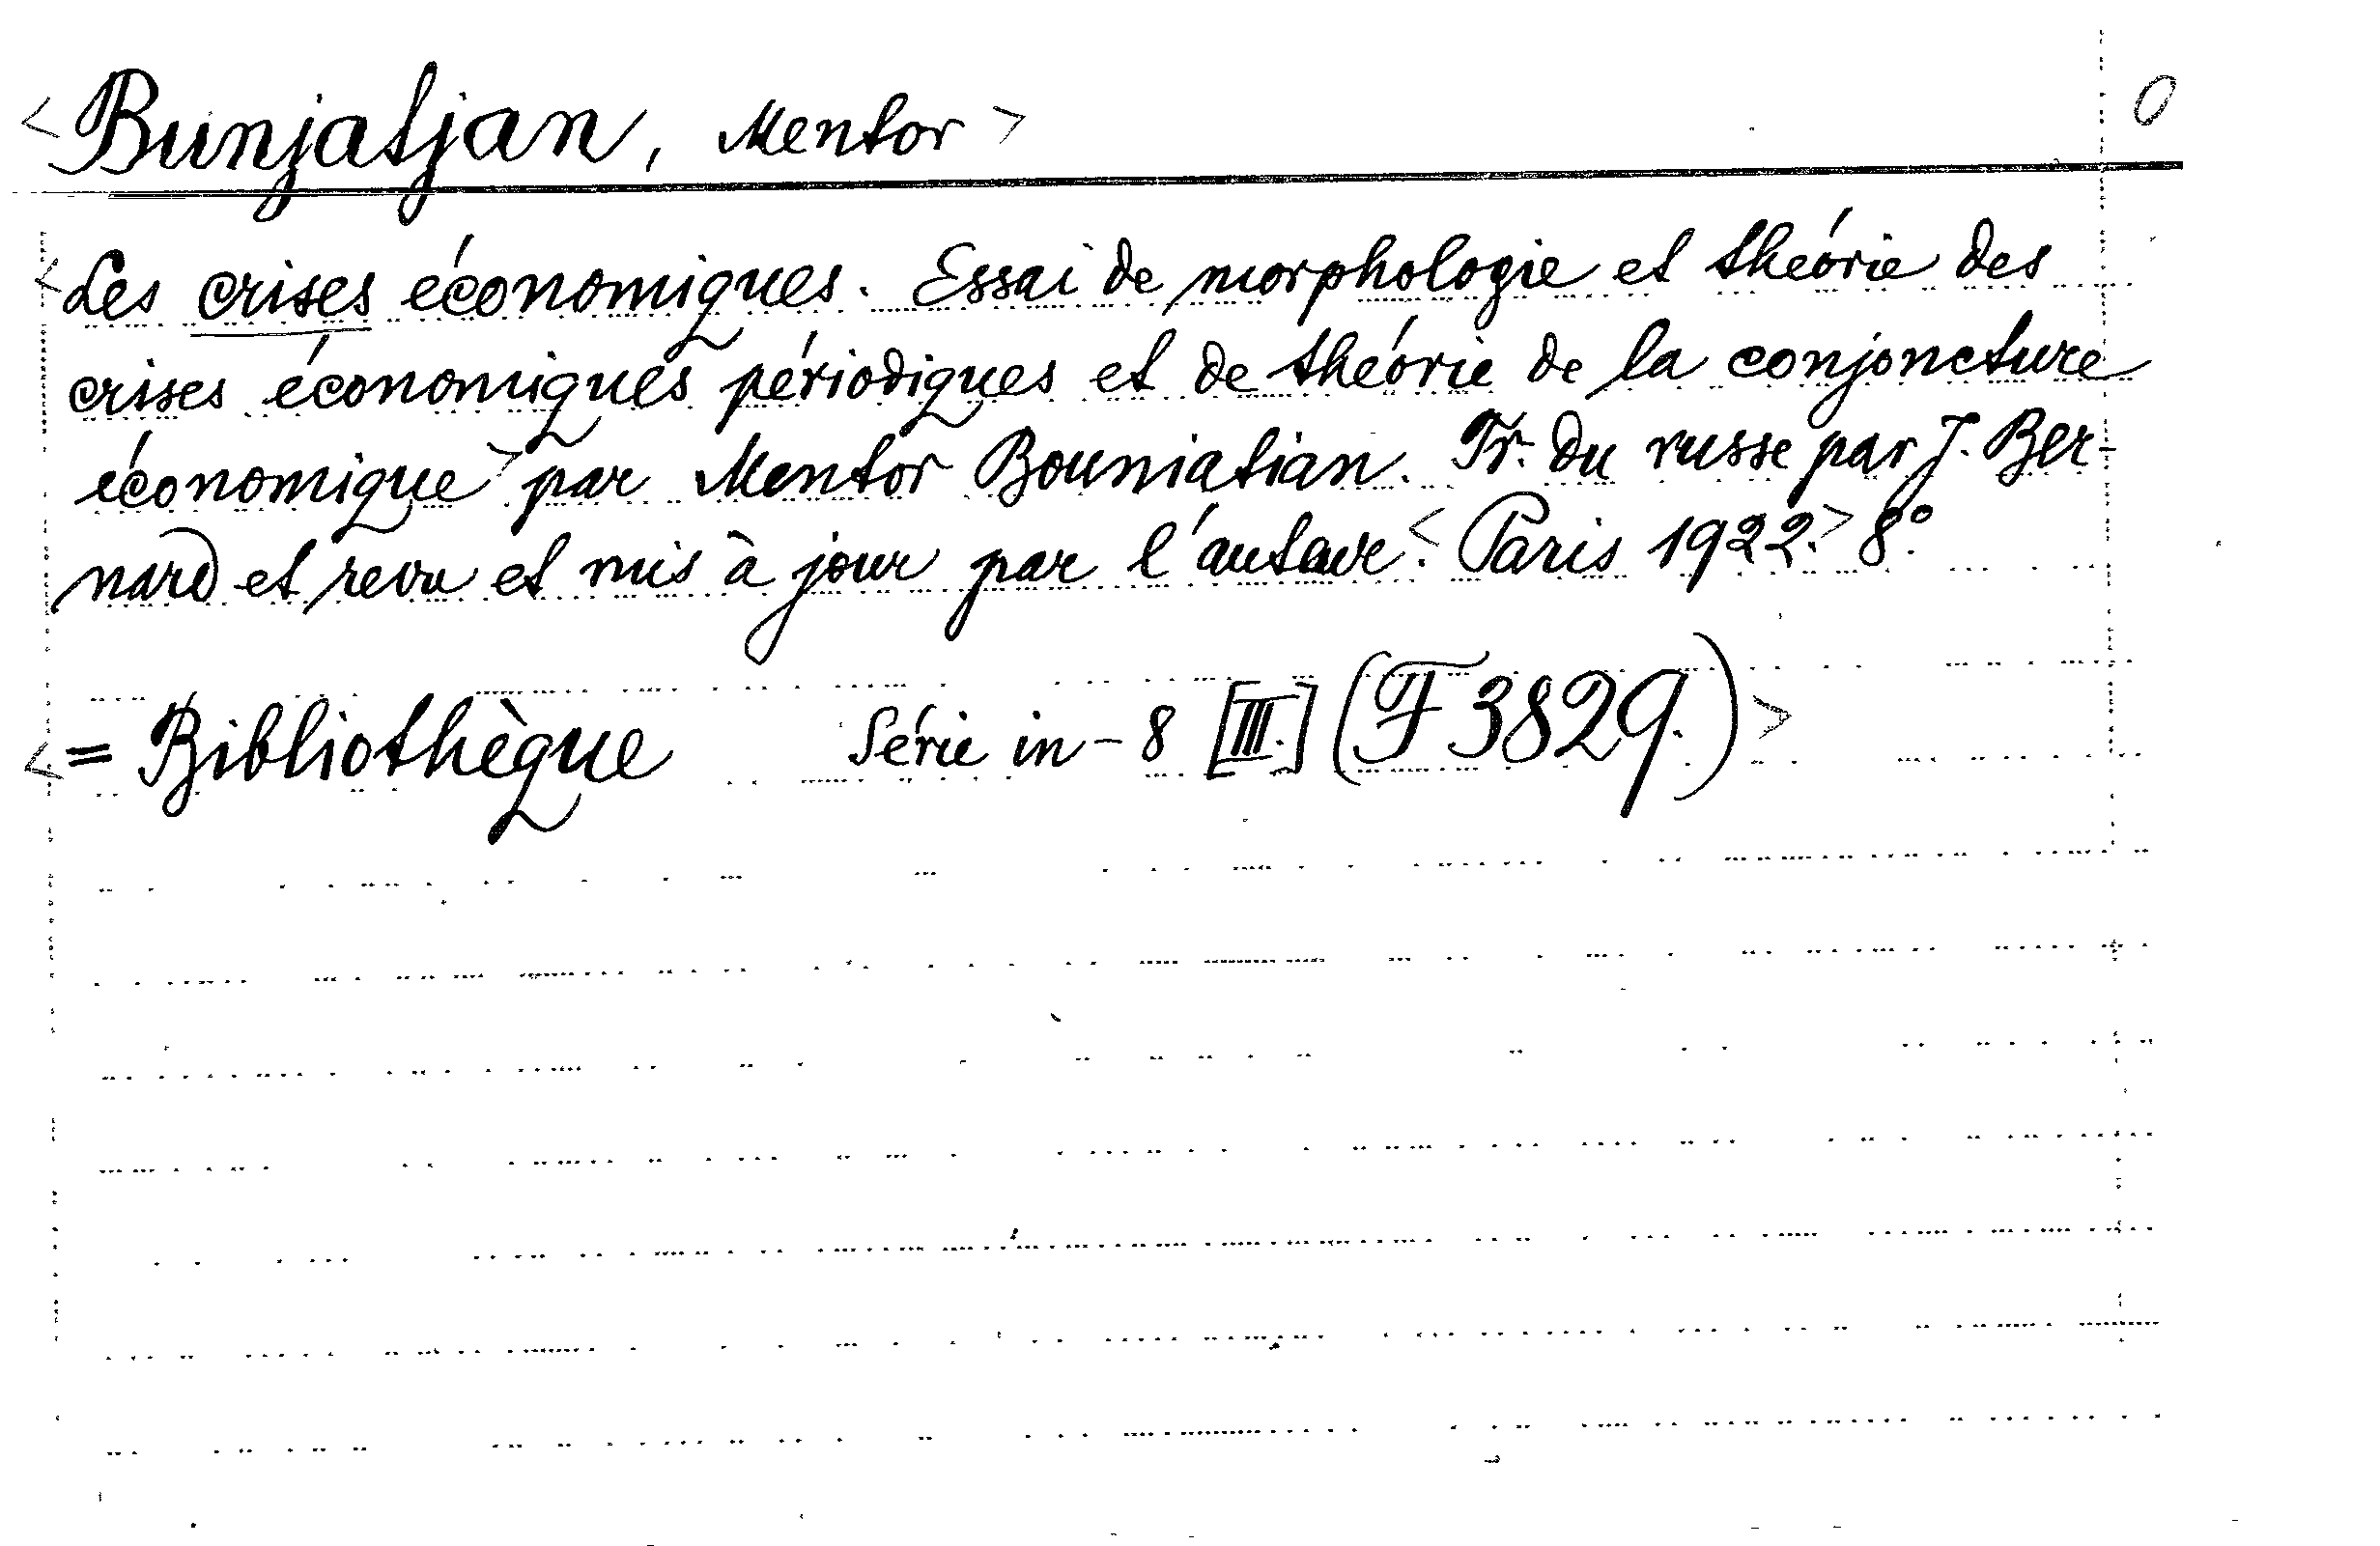 <Bunjatjan, Mentor> 0
<Les crises économiques. Essai de morphologie et théorie des
crises économiques périodiques et de théorie de la conjoncture
économique> par Mentor Bouniatian. Tr. du russe par J. Ber-
nard et revu et mis à jour par l'auteur. <Paris 1922.> 8°.
<= Bibliothèque Série in-8 [III.] (F 3829.)>